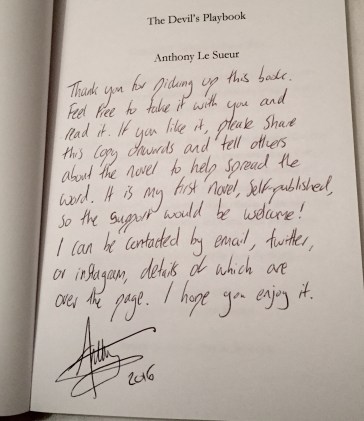 The Devil's Playbook
Anthony Le Sueur
Thank you for picking up this book.
Feel free to take it with you and
read it. If you like it, please share
this copy onwards and tell others
about the novel to help spread the
word. It is my first novel, self-published,
so the support would be welcome!
I can be contacted by email, twitter,
or instagram, details of which are
over the page. I hope you enjoy it.
2016